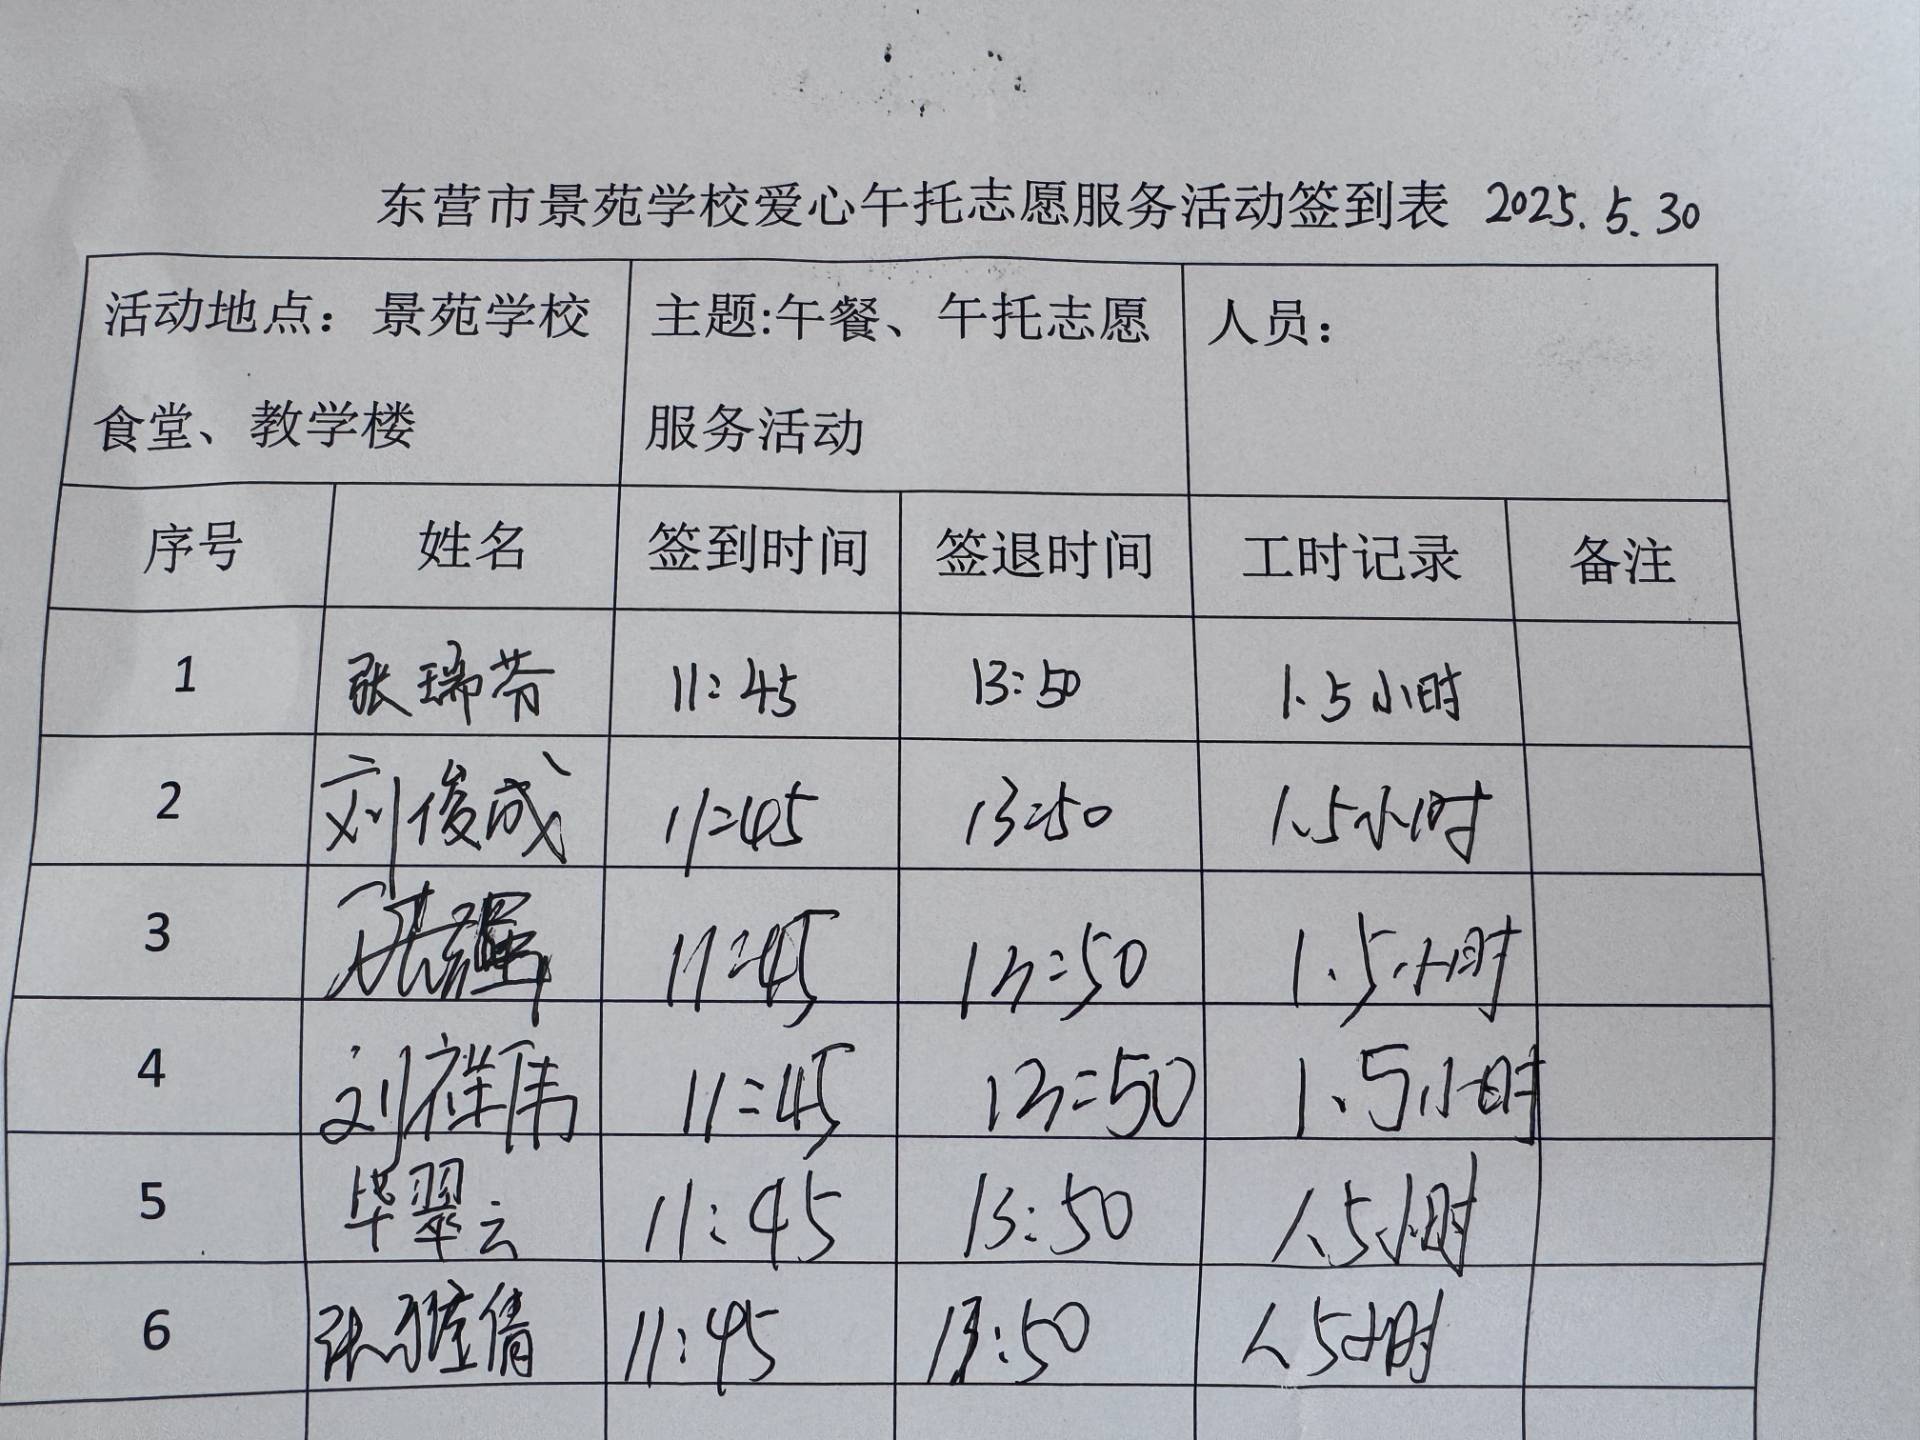 东营市景苑学校爱心午托志愿服务活动签到表 2025.5.30
活动地点：景苑学校 主题:午餐、午托志愿 人员：
食堂、教学楼 服务活动
序号 姓名 签到时间 签退时间 工时记录 备注
1 张瑞芬 11:45 13:50 1.5小时
2 刘俊成 11:45 13:50 1.5小时
3 11:45 13:50 1.5小时
4 刘祥伟 11:45 13:50 1.5小时
5 毕翠云 11:45 13:50 1.5小时
6 张 倩 11:45 13:50 1.5小时